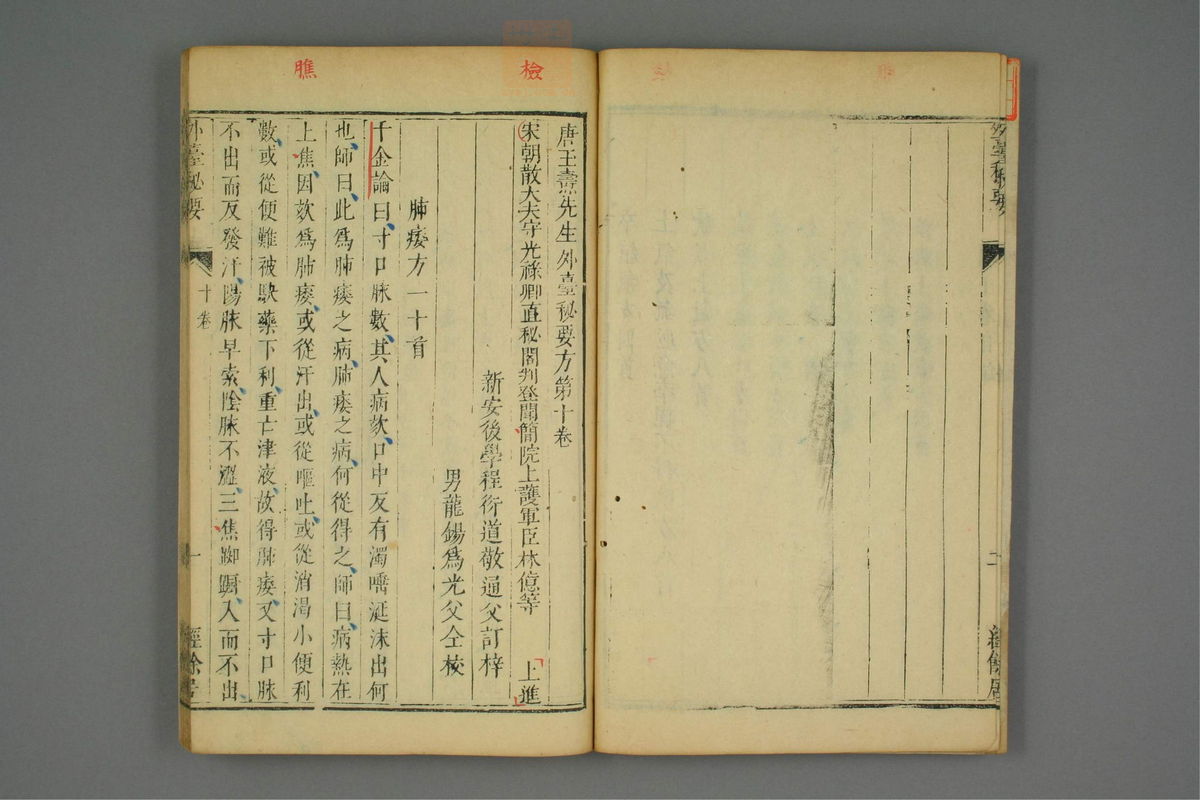 外臺秘要
二
經餘居
檢
醮
唐王燾先生外臺秘要方第十卷
宋朝散大夫守光祿卿直秘閣判登聞簡院上護軍臣林億等 上進
新安後學程衍道敬通父訂梓
男龍錫爲光父仝校
肺痿方一十首
千金論曰寸口脉數其人病欬口中反有濁唾涎沫出何
也師曰此爲肺痿之病肺痿之病何從得之師曰病熱在
上焦因欬爲肺痿或從汗出或從嘔吐或從消渴小便利
數或從便難被駃藥下利重亡津液故得肺痿又寸口脉
不出而反發汗陽脉早索陰脉不澀三焦踟躕入而不出
外臺秘要
十卷
一
經餘居